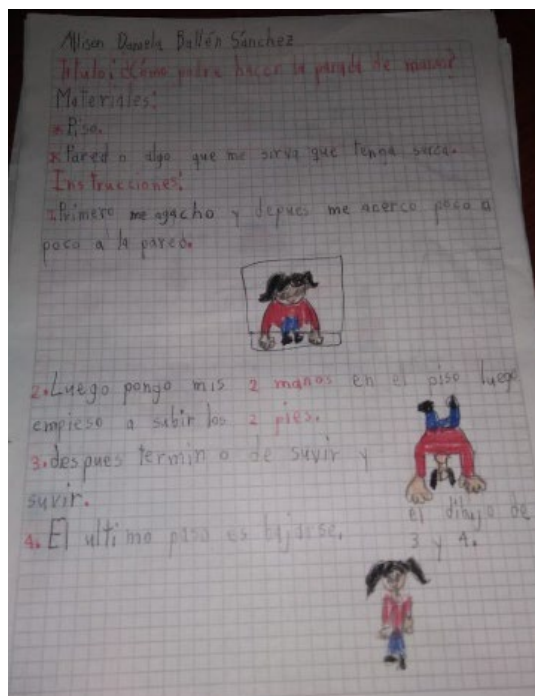 Allison Daniela Ballén Sánchez
Titulo: ¿Cómo podre hacer la parada de manos?
Materiales:
* Piso.
* Pared o algo que me sirva que tenga serca.
Instrucciones:
1. Primero me agacho y depues me acerco poco a
poco a la pared.
2. Luego pongo mis 2 manos en el piso luego
empieso a subir los 2 pies.
3. despues termino de suvir y
suvir.
4. El ultimo paso es bajarse.
el dibujo de
3 y 4.